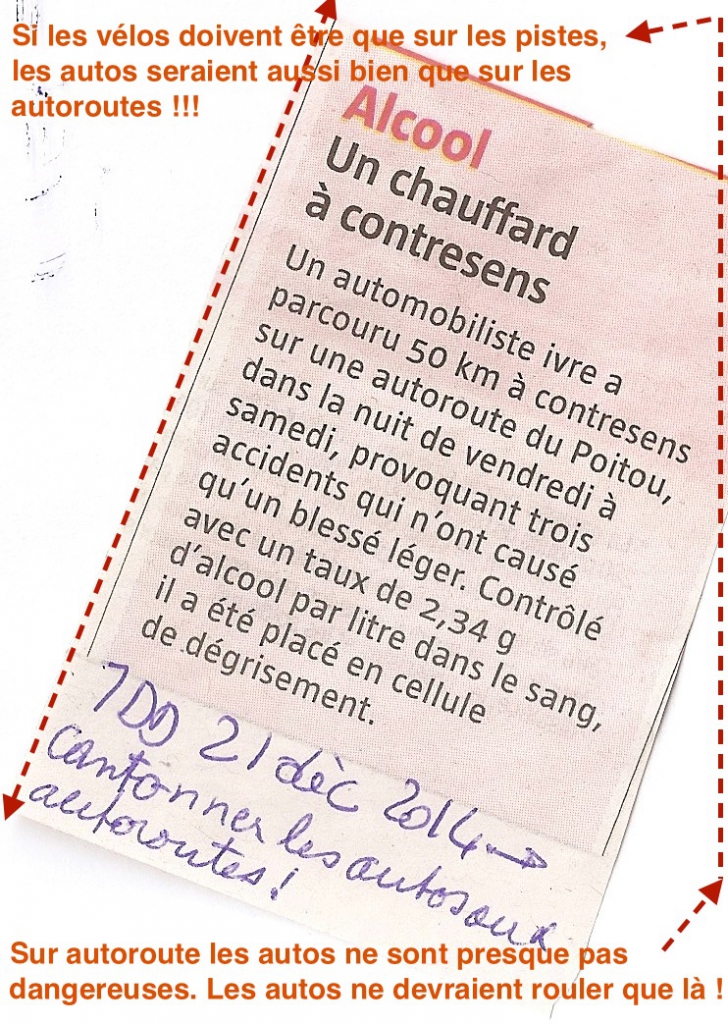 Si les vélos doivent être que sur les pistes,
les autos seraient aussi bien que sur les
autoroutes !!!
Alcool
Un chauffard
à contresens
Un automobiliste ivre a
parcouru 50 km à contresens
sur une autoroute du Poitou,
dans la nuit de vendredi à
samedi, provoquant trois
accidents qui n'ont causé
qu'un blessé léger. Contrôlé
avec un taux de 2,34 g
d'alcool par litre dans le sang,
il a été placé en cellule
de dégrisement.
7DD 21 dèc 2014 →
cantonner les autos aux
autoroutes !
Sur autoroute les autos ne sont presque pas
dangereuses. Les autos ne devraient rouler que là !